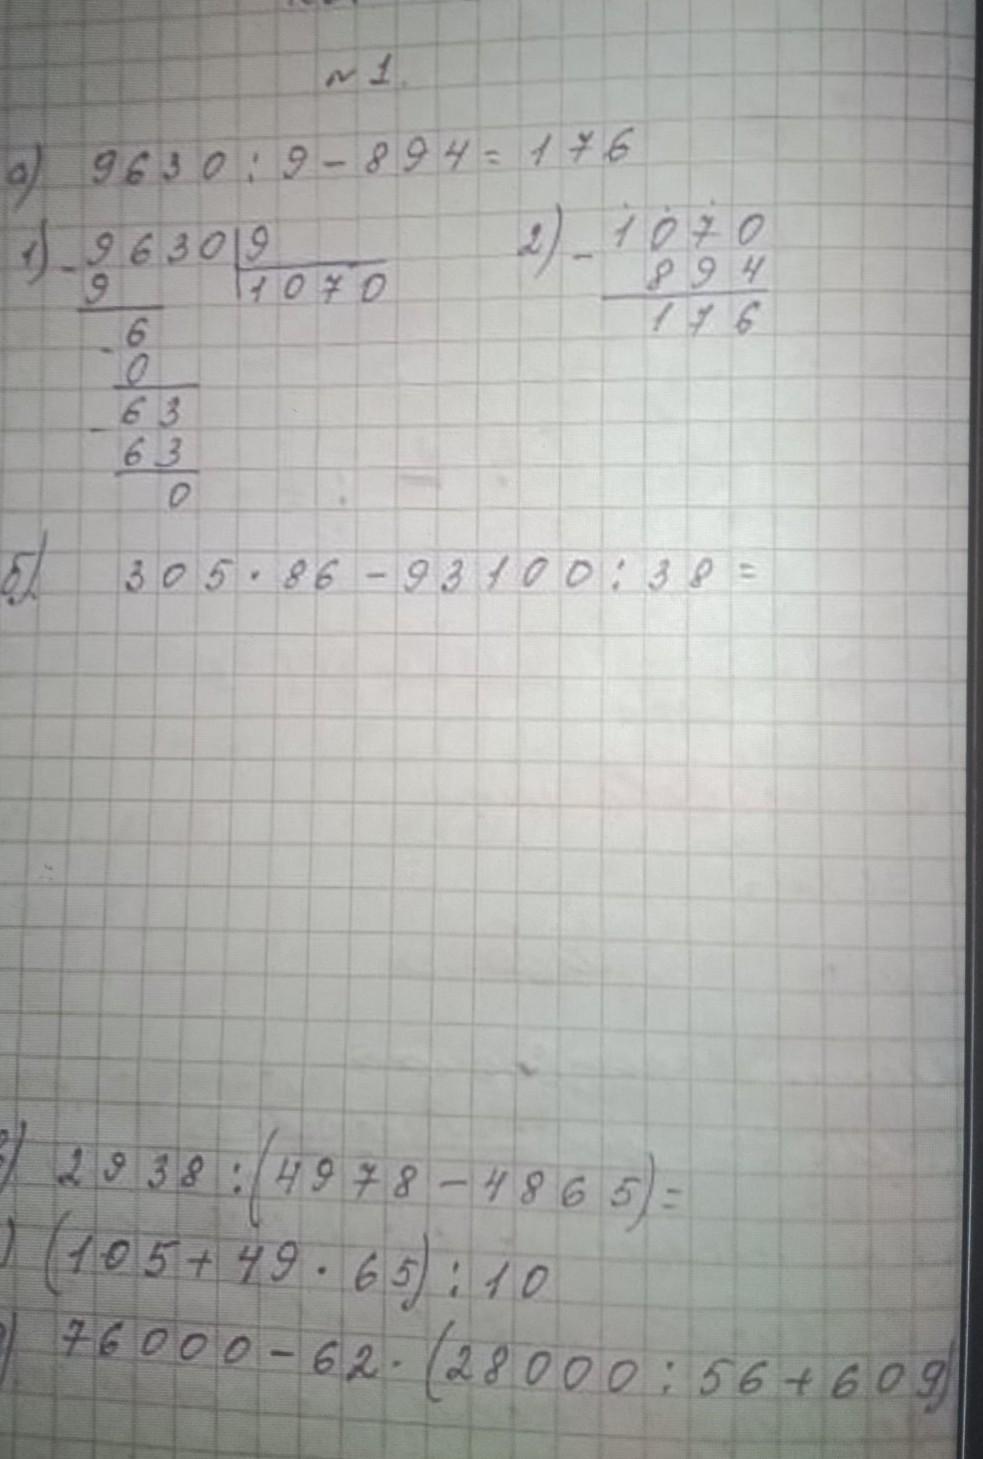 №1.
а) 9630 : 9 - 894 = 176
1) - 9630 | 9
9 1070
- 6
0
- 63
63
0
2) - 1070
894
176
б) 305 · 86 - 93100 : 38 =
в) 2938 : (4978 - 4865) =
) (105 + 49 · 65) : 10
) 76000 - 62 · (28000 : 56 + 609)